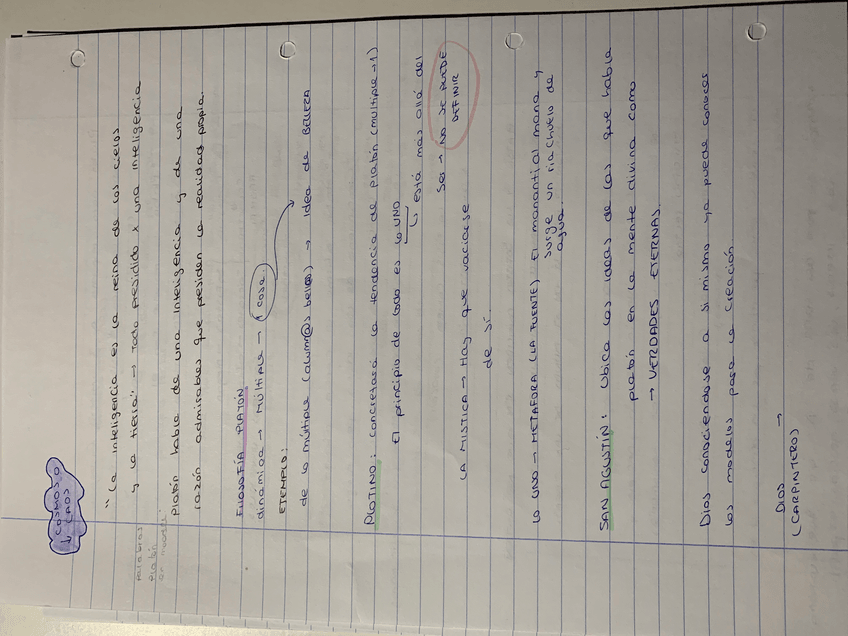 COSMOS O
↓ CAOS
palabras
platón
en
"La inteligencia es la reina de los cielos
y la tierra" → Todo presidido x una inteligencia
Platón habla de una inteligencia y de una
razón admirables que presiden la realidad propia.
FILOSOFÍA PLATÓN
dinámica → MÚLTIPLE → 1 cosa.
EJEMPLO:
de lo múltiple (alumn@s bell@s) → idea de BELLEZA
PLOTINO: concretará la tendencia de platón (múltiple → 1)
El principio de todo es lo UNO
↳ está mas allá del
ser → NO SE PUEDE
DEFINIR
LA MISTICA → Hay que vaciarse
de sí.
lo UNO → METÁFORA (LA FUENTE) El manantial mana y
surge un riachuelo de
agua.
SAN AGUSTÍN: Ubica las ideas de las que habla
platón en la mente divina como
→ VERDADES ETERNAS.
Dios conociéndose a si mismo ya puede conocer
los modelos para la creación
DIOS →
(CARPINTERO)